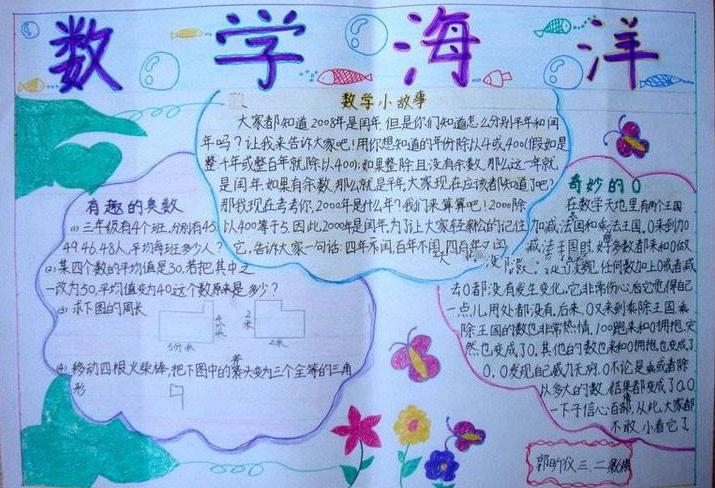 数学海洋
数学小故事
大家都知道2008年是闰年,但是你们知道怎么分别平年和闰
年吗?让我来告诉大家吧!用你想知道的年份除以4或400(假如是
整千年或整百年就除以400);如果整除且没有余数,那么这一年就
是闰年.如果有余数,那么就是平年,大家现在应该都知道了吧?
那我现在考考你,2000年是什么年?我们来算算吧!2000除
以400等于5.因此2000年是闰年.为了让大家轻松的记住
它,告诉大家一句话:四年一闰,百年不闰,四百年又闰
有趣的奥数
(1)三年级有4个班,分别有45
49.46.48人,平均每班多少人?
(2)某四个数的平均值是30,若把其中之
一改为50,平均值变为40,这个数原来是多少?
(3)求下图的周长
4分米
5分米
2米
2米
(4)移动四根火柴棒,把下图中的斧头变为三个全等的三角
形
奇妙的0
在数学天地里,有两个王国
加减法国和乘法王国,0来到加
减法王国时,好多数都来和0做
发现,任何数加上0或者减
去0都没有发生变化,它非常伤心,后它觉得自己
一点儿用处都没有,后来,0又来到乘除王国,乘
除王国的数也非常热情,100跑来和0拥抱,突
然也变成了0,其他的数也来和0拥抱,也变成了
0,0发现自己威力无穷,0不论是乘或者除
以多大的数,结果都变成了0,0
一下子信心百倍,从此,大家都
不敢小看它了
三、二